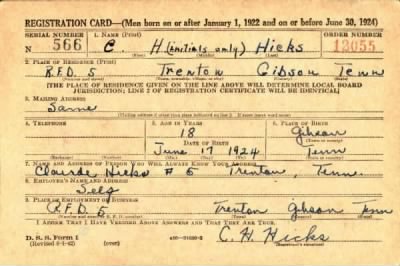 REGISTRATION CARD—(Men born on or after January 1, 1922 and on or before June 30, 1924)
SERIAL NUMBER 1. NAME (Print) ORDER NUMBER
N 566 C. H (initials only) Hicks 13055
(First) (Middle) (Last)
2. PLACE OF RESIDENCE (Print)
R.F.D. 5 Trenton Gibson Tenn
[THE PLACE OF RESIDENCE GIVEN ON THE LINE ABOVE WILL DETERMINE LOCAL BOARD
JURISDICTION; LINE 2 OF REGISTRATION CERTIFICATE WILL BE IDENTICAL]
3. MAILING ADDRESS
Same
[Mailing address if other than place indicated on line 2. If same insert word same]
4. TELEPHONE 5. AGE IN YEARS 6. PLACE OF BIRTH
18 Gibson
DATE OF BIRTH
June 17 1924 Tenn
7. NAME AND ADDRESS OF PERSON WHO WILL ALWAYS KNOW YOUR ADDRESS
Claude Hicks # 5 Trenton, Tenn.
8. EMPLOYER'S NAME AND ADDRESS
Self
9. PLACE OF EMPLOYMENT OR BUSINESS
R.F.D. 5 Trenton Gibson Tenn
I AFFIRM THAT I HAVE VERIFIED ABOVE ANSWERS AND THAT THEY ARE TRUE.
D. S. S. Form 1
(Revised 6-1-42) (over) C. H. Hicks
(Registrant's signature)